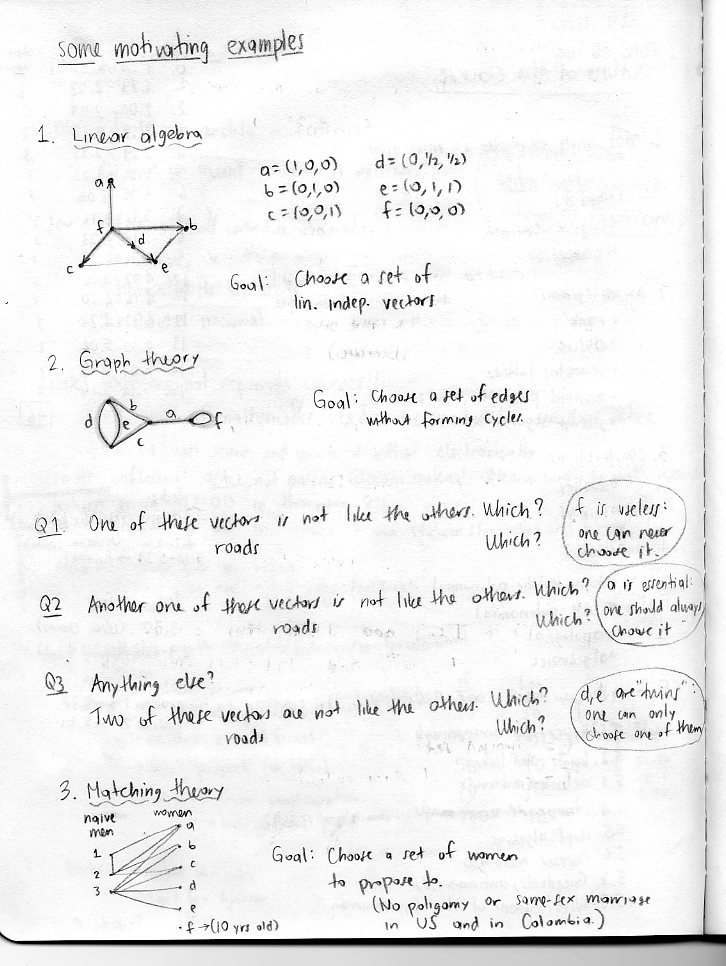 some motivating examples
1. Linear algebra
a = (1,0,0) d = (0,1/2,1/2)
b = (0,1,0) e = (0,1,1)
c = (0,0,1) f = (0,0,0)
a
f b
d
c e
Goal: Choose a set of
lin. indep. vectors
2. Graph theory
b
d e a f
c
Goal: Choose a set of edges
without forming cycles.
Q1 One of these vectors is not like the others. Which?
roads Which?
f is useless:
one can never
choose it.
Q2 Another one of these vectors is not like the others. Which?
roads Which?
a is essential:
one should always
choose it
Q3 Anything else?
Two of these vectors are not like the others. Which?
roads Which?
d,e are "twins":
one can only
choose one of them
3. Matching theory
naive women
men
a
1 b
2 c
3 d
e
f → (10 yrs old)
Goal: Choose a set of women
to propose to.
(No poligamy or same-sex marriage
in US and in Colombia.)